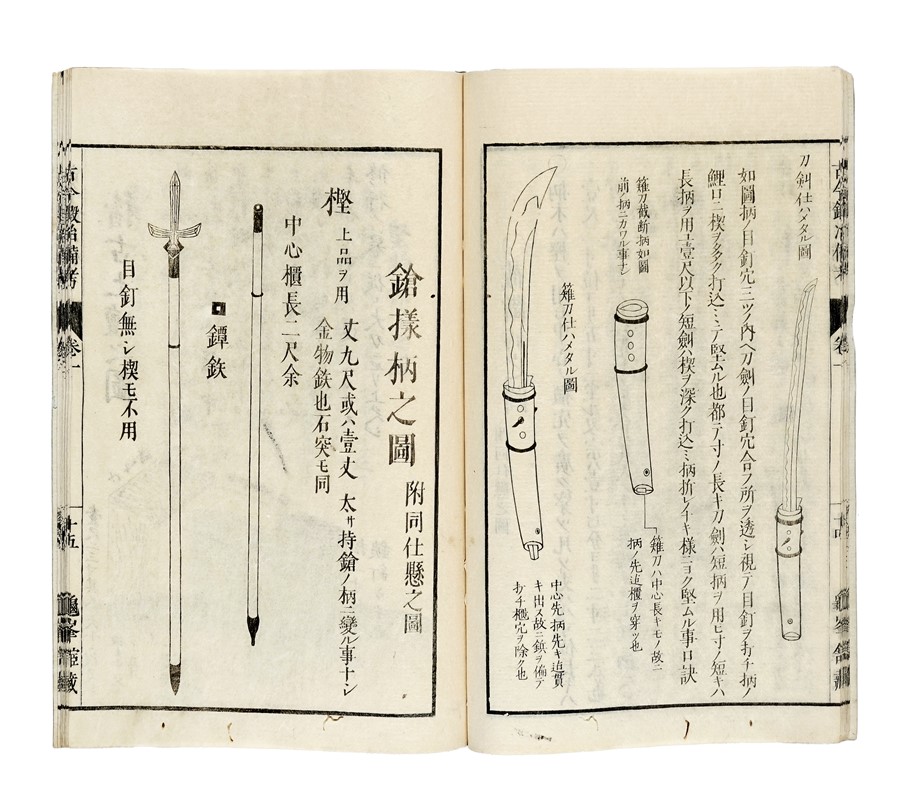 刀剱仕ハメタル圖
如圖柄ノ目釘穴三ツノ内ヘ刀劔ノ目釘穴合フ所ヲ透シ視テ目釘ヲ打チ柄ノ
鯉口ニ楔ヲ多ク打込ミテ堅ムル也都テ寸ノ長キ刀劔ハ短柄ヲ用ヒ寸ノ短キハ
長柄ヲ用ユ壹尺以下ノ短劔ハ楔ヲ深ク打込ミ柄折レナキ様ニヨク堅ムル事口訣
薙刀截断柄如圖
前ノ柄ニカワル事ナシ
薙刀ハ中心長キモノ故ニ
柄ノ先迠櫃ヲ穿ツ也
薙刀仕ハメタル圖
中心先柄先キ迠貫
キ出ス故ニ鋲ヲ備テ
打チ櫃穴ヲ除ク也
鎗様柄之圖
附同仕懸之圖
樫
上品ヲ用
丈九尺或ハ壹丈
太サ持鎗ノ柄ニ變ル事ナシ
金物鉄也石突モ同
中心櫃長二尺余
鐔鉄
目釘無シ楔モ不用
古今鍛冶備考
卷一
十五